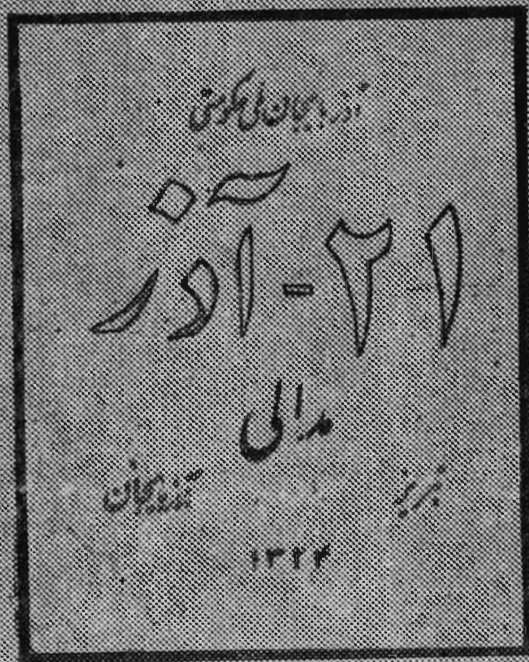 آذربایجان ملی حکومتی
۲۱ - آذر
مدالی
تبریز آذربایجان
۱۳۲۴